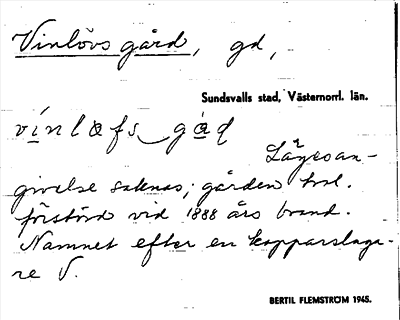 Vinlövs gård, gd,
Sundsvalls stad, Västernorrl. län.
vínlafs gád
Lägesan-
givelse saknas; gården trol.
förstörd vid 1888 års brand.
Namnet efter en kopparslaga-
re V.
BERTIL FLEMSTRÖM 1945.